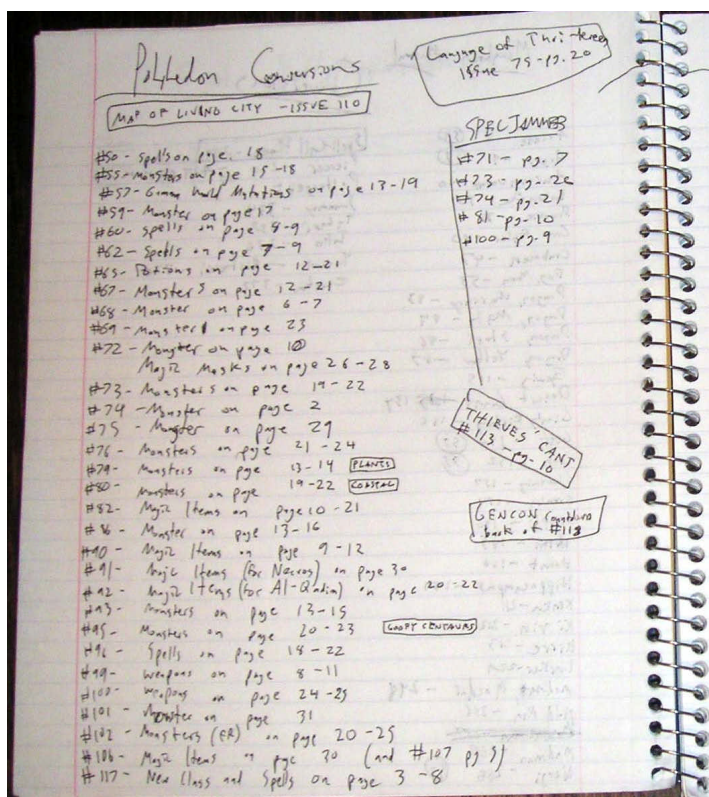 Polyhedon Conversions
Language of Thri-kreen
issue 75 - pg. 20
MAP OF LIVING CITY - ISSUE 110
SPELJAMMER
#71 - pg. 7
#73 - pg. 20
#74 - pg. 21
#81 - pg. 10
#100 - pg. 9
#50 - Spells on page. 18
#55 - Monsters on page 15-18
#57 - Gamma World Mutations on page 13-19
#59 - Monster on page 17
#60 - Spells on page 8-9
#62 - Spells on page 7-9
#65 - Potions on page 12-21
#67 - Monsters on page 12-21
#68 - Monster on page 6-7
#69 - Monster on page 23
#72 - Monster on page 10
Magic Masks on page 26-28
#73 - Monsters on page 19-22
#74 - Monster on page 2
#75 - Monster on page 29
#76 - Monsters on page 21-24
#79 - Monsters on page 13-14 PLANTS
#80 - Monsters on page 19-22 COASTAL
#82 - Magic Items on page 10-21
#86 - Monster on page 13-16
#90 - Magic Items on page 9-12
#91 - Magic Items (For Necros) on page 30
#92 - Magic Items (for Al-Qadim) on page 20-22
#93 - Monsters on page 13-15
#95 - Monsters on page 20-23 GOOFY CENTAURS
#96 - Spells on page 18-22
#99 - Weapons on page 8-11
#100 - Weapons on page 24-25
#101 - Monster on page 31
#102 - Monsters (FR) on page 20-25
#106 - Magic Items on page 30 (and #107 pg 9)
#117 - New Class and Spells on page 3-8
THIEVES' CANT
#113 - pg. 10
GENCON countdown
back of #118